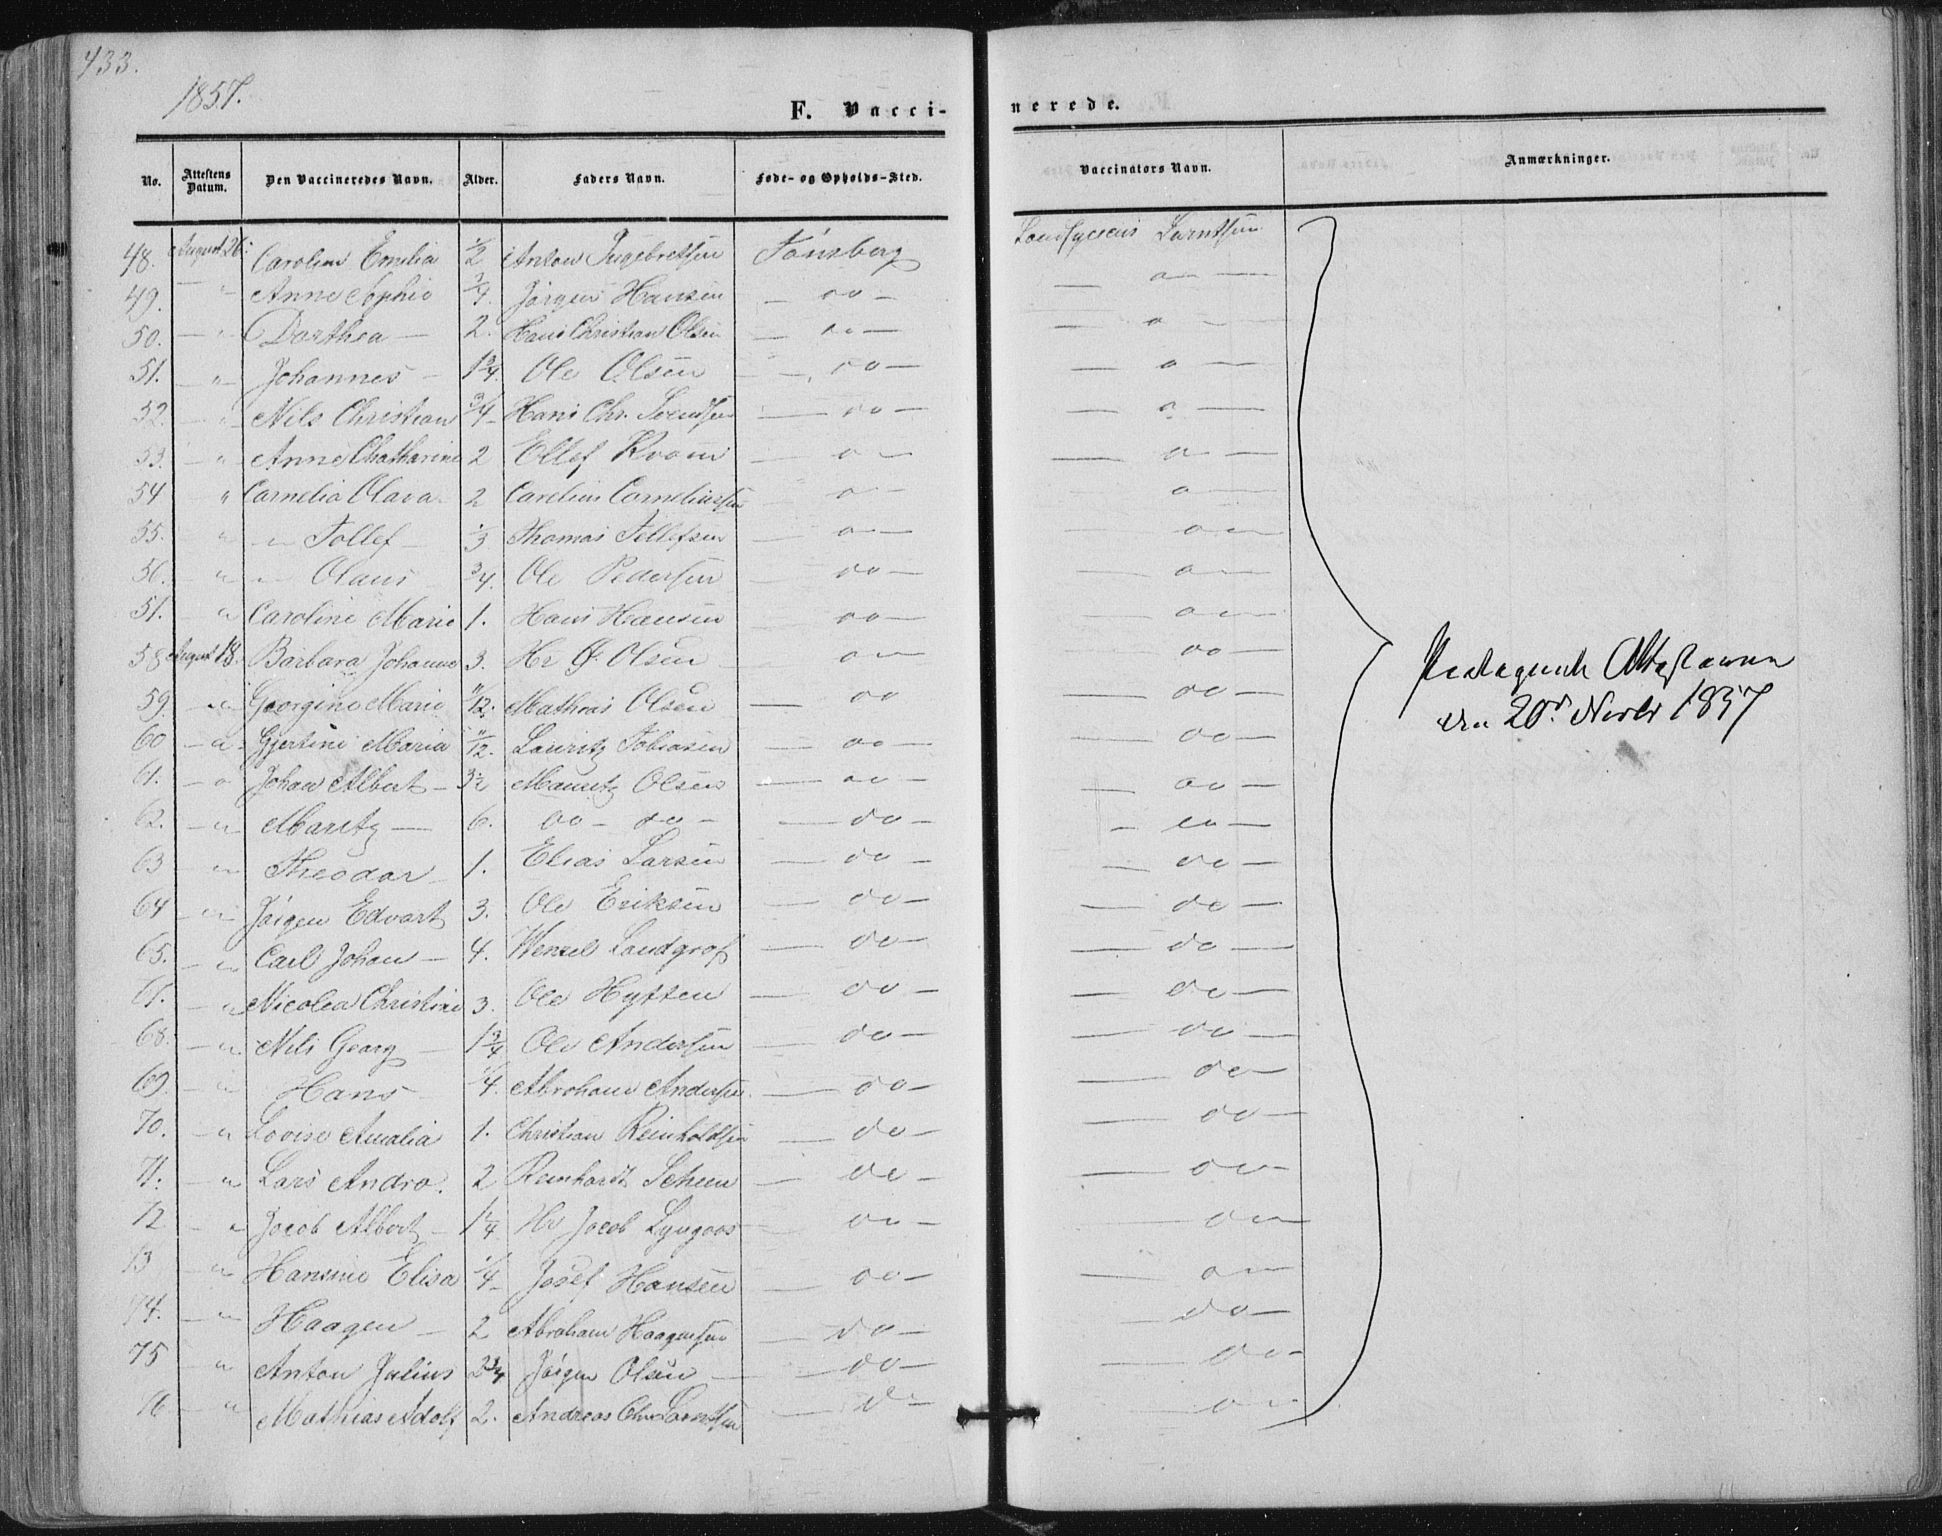 433.
1857.
F. Vacci-
nerede.
No. Attestens Datum. Den Vaccineredes Navn. Alder. Faders Navn. Føde- og Opholds-Sted. Vaccinatørs Navn. Anmærkninger.
48. August 26. Emilia 1/2 Anton Tønsberg
49. " Anne Sophie 3/4 Jørgen Hansen — do —
50. — " Dorthea — 2. Hans Christian Olsen — do —
51. — " — Johannes — 1 3/4. Ole Olsen — do — — do —
52. — " Nils Christian 3/4 Hans Chr. Svendsen — do — — do —
53. — " Anne Chatharine 2 Ellef — do — — do —
54 " Cornelia Olava 2 Corneliussen — do — — do —
55. " — Tollef — 1/3 Thomas Tollefsen — do — — do —
56. " — Olaus 3/4. Ole Pedersen — do — — do —
51. " Caroline Marie 1. Hans Hansen — do — — do —
58 August 18. Barbara Johanne 3. Hr Olsen — do — — do —
59. — " Georgine Marie 11/12. Mathias Olsen — do — do —
60 — " Gjertine Maria 11/12. Lauritz Tobiasen — do — — do —
61. — " Johan Albert — 3 1/2 Mauritz Olsen — do — — do —
62. — " Maritz — 6. do — do — — do — — do —
63 — " Theodor — 1. Elias Larsen — do — — do —
64 — " Jørgen Edvart 3. Ole Eriksen — do — — do —
65. — " Carl Johan — 4. Wenzel Landgrof — do — — do —
67. — " Nicolea Christine 3. Ole Hytten — do — — do —
68. — " Nils Georg — 1 3/4 Ole Andersen — do — — do —
69. — " Hans 1/4 Abraham Andersen — do — — do —
70. — " Lovise Amalia 1. Christian Reinholdsen — do — — do —
71. — " Lars Andro. 2 Reinhardt — do — — do —
72 — " Jacob Albert — 1 1/4 Hr Jacob Lyngoos — do — — do —
73 " Hansine Elisa 1/4 Josef Hansen — do — — do —
74. — " Haagen — 2 Abraham Haagensen — do — — do —
75 " Anton Julius 2 3/4 Jørgen Olsen — — do — do —
76 — " Mathias Adolf 2. Andreas Chr — do — — do —
den 20de Novbr 1857